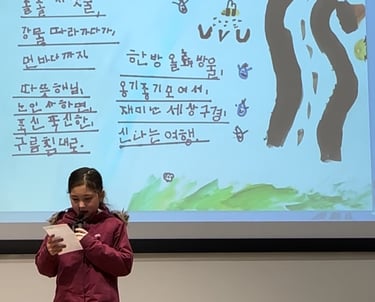 강물 따라가다가,
먼바다까지
따뜻해님,
인사하면,
폭신폭신한,
구름침대로.
한방울 방울,
옹기종기모여서,
재미난 세상구경,
신나는 여행.